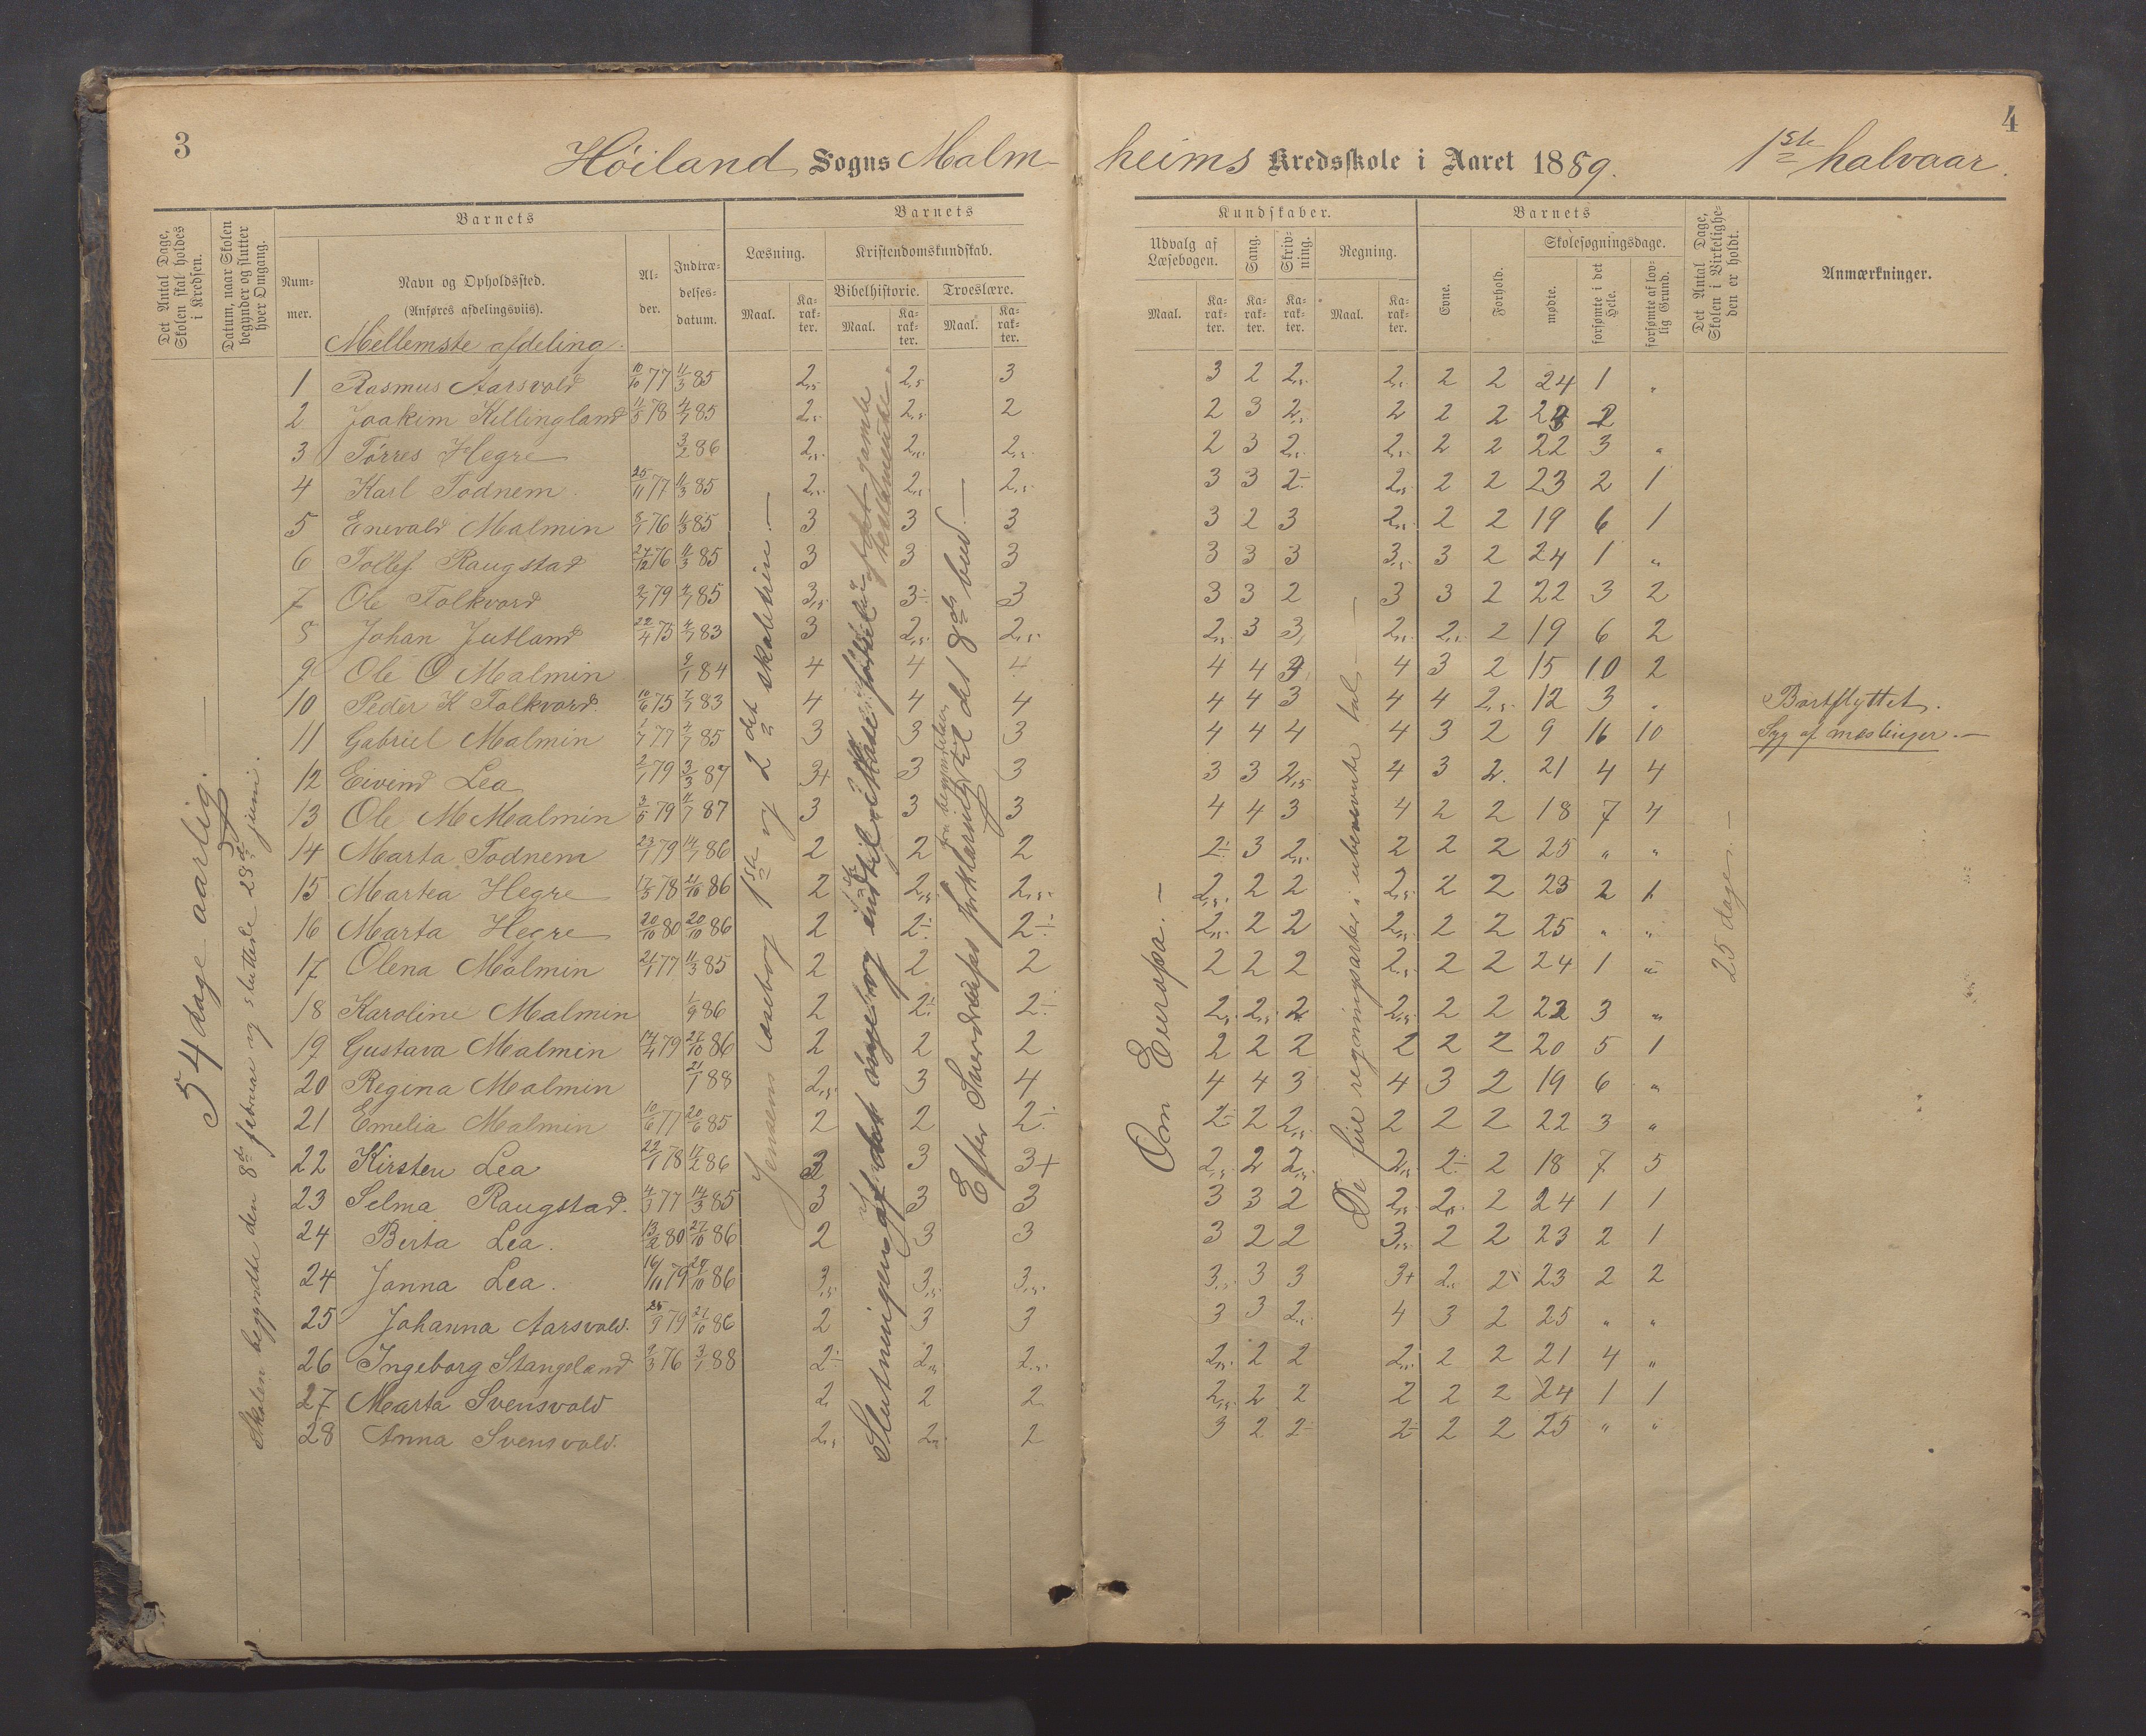 3
4
Höiland Sogns Malm-
heims Kredsskole i Aaret 1889. 1ste halvaar.
Det Antal Dage, Skolen skal holdes i Kredsen.
Datum, naar Skolen begynder og slutter hver Omgang.
Barnets
Nummer.
Navn og Opholdssted.
(Anføres afdelingsviis).
Alder.
Indtrædelsesdatum.
Barnets
Læsning.
Kristendomskundskab.
Bibelhistorie.
Troeslære.
Maal.
Karakter.
Maal.
Karakter.
Maal.
Karakter.
Kundskaber.
Udvalg af Læsebogen.
Sang.
Skrivning.
Regning.
Maal.
Karakter.
Karakter.
Karakter.
Maal.
Karakter.
Barnets
Evne.
Forhold.
Skolesøgningsdage.
mødte.
forsømte i det Hele.
forsømte af lovlig Grund.
Det Antal Dage, Skolen i Virkeligheden er holdt.
Anmærkninger.
54 dage aarlig.
Skolen begyndte den 8de februar og sluttede 29de juni.
Jensens læsebog 1ste og 2det skoletrin.
Efter Sverdrups forklaring til det 8de bud.
Om Europa.
De fire regningsarter i ubenævnte tal
25 dage.
Mellemste afdeling.
1 Rasmus Aarsvold 10/10 77 11/3 85 2,5 2,5 3 3 2 2,5 2,5 2 2 24 1 "
2 Joakim Killingland 11/5 78 4/7 85 2,5 2,5 2 2 3 2,5 2 2 2 23 2
3 Tørres Hegre 3/2 86 2,5 2,5 2,5 2 3 2,5 2,5 2 2 22 3 "
4 Karl Todnem 25/11 77 11/3 85 2,5 2,5 2,5 3 3 2÷ 2,5 2 2 23 2 1
5 Enevald Malmin 8/1 76 11/3 85 3 3 3 3 2 3 2,5 2 2 19 6 1
6 Tollef Raugstad 27/12 76 11/3 85 3 3 3 3 3 3 3,5 3 2 24 1 "
7 Ole Folkvord 2/7 79 4/7 85 3,5 3÷ 3 3 3 2 3 3 2 22 3 2
8 Johan Jutland 22/4 75 4/7 83 3 2,5 2,5 2,5 3 3 2,5 2,5 2 19 6 2
9 Ole O Malmin 9/1 84 4 4 4 4 4 3 4 3 2 15 10 2
10 Peder K Folkvord 10/6 75 7/7 83 4 4 4 4 4 3 4 4 2,5 12 3 " Bortflyttet.
11 Gabriel Malmin 1/7 77 4/7 85 3 3 3 4 4 4 4 3 2 9 16 10 Syg af mæslinger.
12 Eivind Lea 2/1 79 3/3 87 3+ 3 3 3 3 2,5 4 3 2 21 4 4
13 Ole M Malmin 3/5 79 11/7 87 3 3 3 4 4 3 4 2 2 18 7 4
14 Marta Todnem 23/1 79 14/7 86 2 2 2 2÷ 3 2,5 2 2 2 25 " "
15 Martea Hegre 17/3 78 21/10 86 2 2,5 2,5 2,5 2 2 2,5 2 2 23 2 1
16 Marta Hegre 20/10 80 20/10 86 2 2÷ 2÷ 2,5 2 2 2,5 2 2 25 " "
17 Olena Malmin 21/1 77 11/3 85 2 2 2 2 2 2 2,5 2 2 24 1 "
18 Karoline Malmin 1/9 86 2 2÷ 2÷ 2,5 2,5 2 2,5 2 2 22 3 "
19 Gustava Malmin 14/4 79 27/10 86 2 2 2 2 2 2 2 2 2 20 5 1
20 Regina Malmin 21/1 88 2,5 3 4 4 4 3 4 3 2 19 6 "
21 Emelia Malmin 10/6 77 20/6 85 2 2 2÷ 2÷ 2 2,5 2 2 2 22 3 "
22 Kirsten Lea 22/1 78 11/2 86 3 3 3+ 2,5 2 2,5 2,5 2÷ 2 18 7 5
23 Selma Raugstad. 4/3 77 14/3 85 3 3 3 3 3 2 2,5 2,5 2 24 1 1
24 Berta Lea. 13/2 80 27/10 86 2 3 3 3 2 2 3,5 2 2 23 2 1
24 Janna Lea. 16/11 79 29/10 86 3,5 3,5 3,5 3,5 3 3 3+ 2,5 2 23 2 2
25 Johanna Aarsvold. 25/9 79 21/10 86 2 3 3 3 3 2,5 4 3 2 25 " "
26 Ingeborg Stangeland 2/3 76 3/1 88 2÷ 2,5 2,5 2,5 2 2 2,5 2 2 21 4 "
27 Marta Svensvold 2 2 2 2,5 2 2 2 2 2 24 1 1
28 Anna Svensvold. 2,5 2,5 2 3 2 2÷ 2÷ 2 2 25 " "